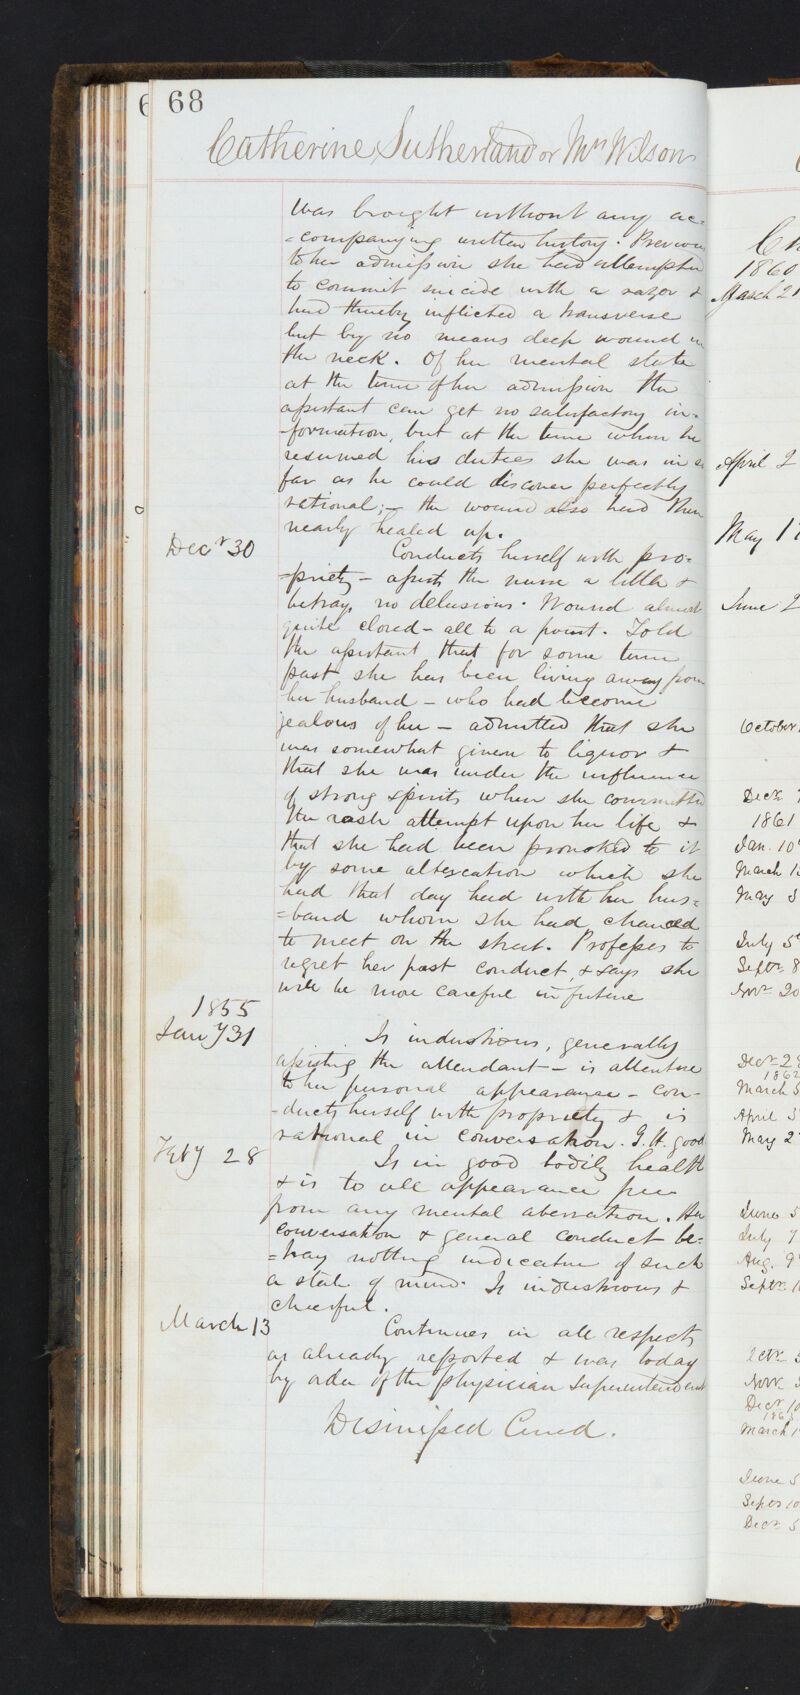 6 68
Catherine Sutherland or Mrs Wilson
was brought without any ac=
=companying written history. Previous
to her admission she had attempted
to commit suicide with a razor &
had thereby inflicted a transverse
but by no means deep wound in
the neck. Of her mental state
at the time of her admission the
assistant can get no satisfactory in=
-formation, but at the time when he
resumed his duties she was in so
far as he could discover perfectly
rational; – the wound also had then
nearly healed up.
Decr 30
Conducts herself with pro=
=priety – assists the nurse a little &
betrays no delusions. Wound almost
quite closed – all to a point. Told
the assistant that for some time
past she has been living away from
her husband – who had become
jealous of her – admitted that she
was somewhat given to liquor &
that she was under the influence
of strong spirits when she committed
the rash attempt upon her life &
that she had been provoked to it
by some altercation which she
had that day had with her hus=
=band whom she had chanced
to meet on the street. Professes to
regret her past conduct, & says she
will be more careful in future
1855
Jany 31
Is industrious, generally
assisting the attendant – is attentive
to her personal appearance – con-
-ducts herself with propriety & is
rational in conversation. G. H. good
Feby 28
Is in good bodily health
& is to all appearance free
from any mental aberration. Her
conversation & general conduct be=
=tray nothing indicative of such
a state of mind. Is industrious &
cheerful.
March 13
Continues in all respects
as already reported & was today
by order of the Physician Superintendent
Dismissed Cured.
1860
March 21
April 2
May 1
June 2
October
Decr
1861
Jan. 10
March 1
May 3
July 5
Septr 8
Novr 20
Decr 2
1862
March 5
April 3
May 2
June 5
July 7
Aug. 9
Septr 1
Octr 3
Novr
Decr 10
1863
March 1
June 5
Septr 10
Decr 5